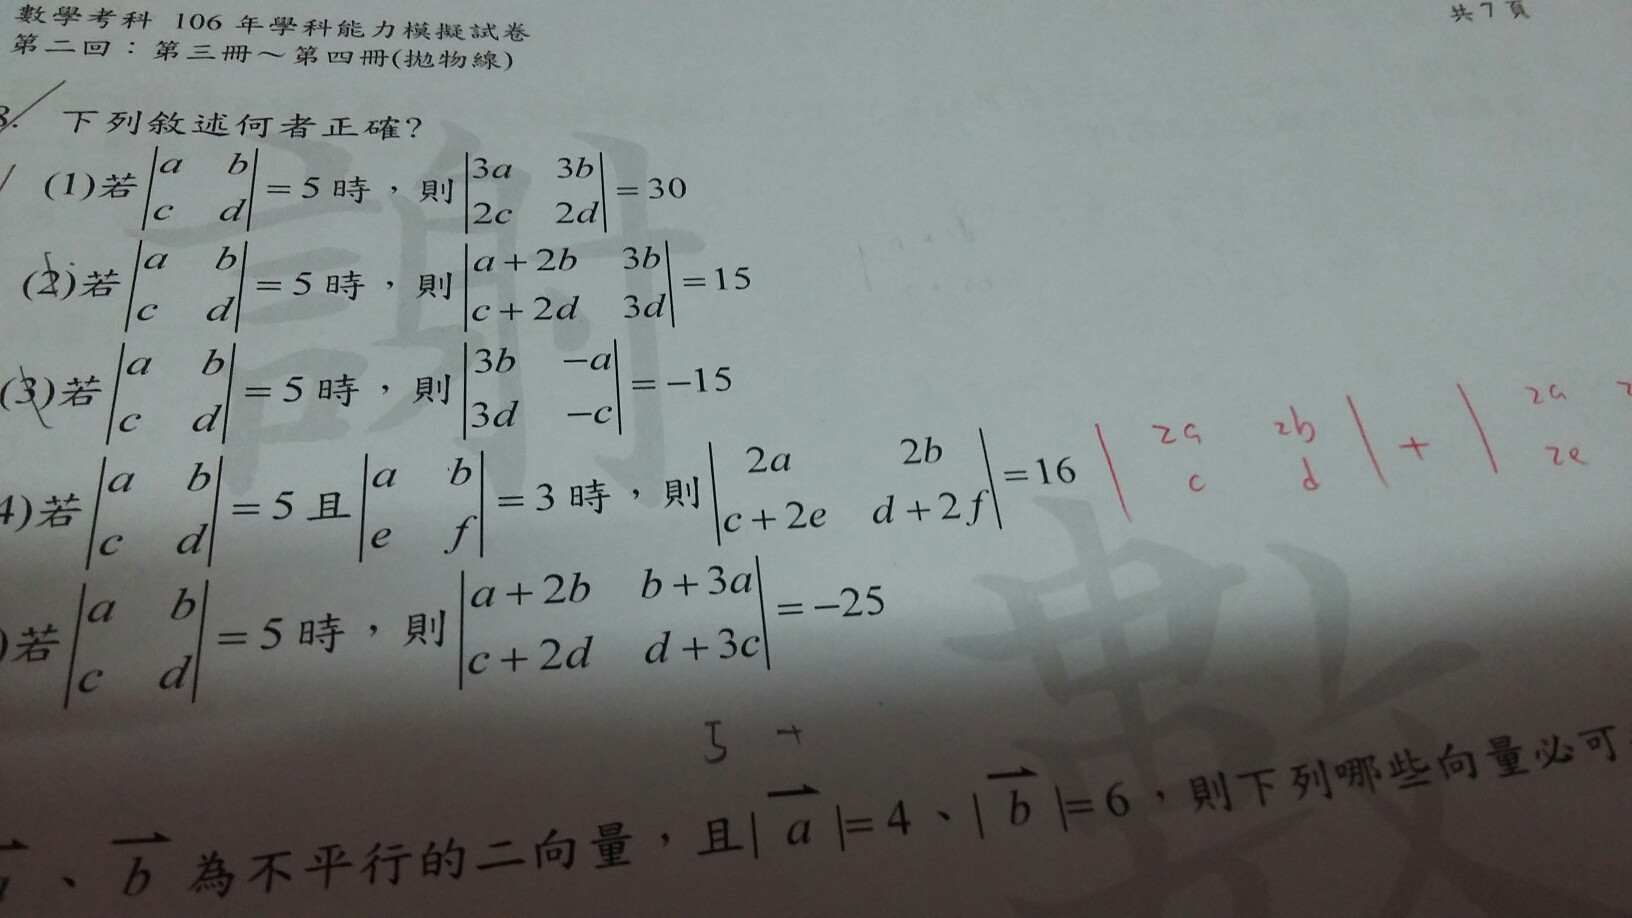 數學考科 106 年學科能力模擬試卷
共 7 頁
第二回：第三冊～第四冊(拋物線)
8. 下列敘述何者正確?
(1)若 |a b; c d| = 5 時，則 |3a 3b; 2c 2d| = 30
(2)若 |a b; c d| = 5 時，則 |a+2b 3b; c+2d 3d| = 15
(3)若 |a b; c d| = 5 時，則 |3b −a; 3d −c| = −15
4)若 |a b; c d| = 5 且 |a b; e f| = 3 時，則 |2a 2b; c+2e d+2f| = 16 |2a 2b; c d| + | 2a 2e
)若 |a b; c d| = 5 時，則 |a+2b b+3a; c+2d d+3c| = −25
5 +
、 b 為不平行的二向量，且| a |= 4、| b |= 6，則下列哪些向量必可
謝
數